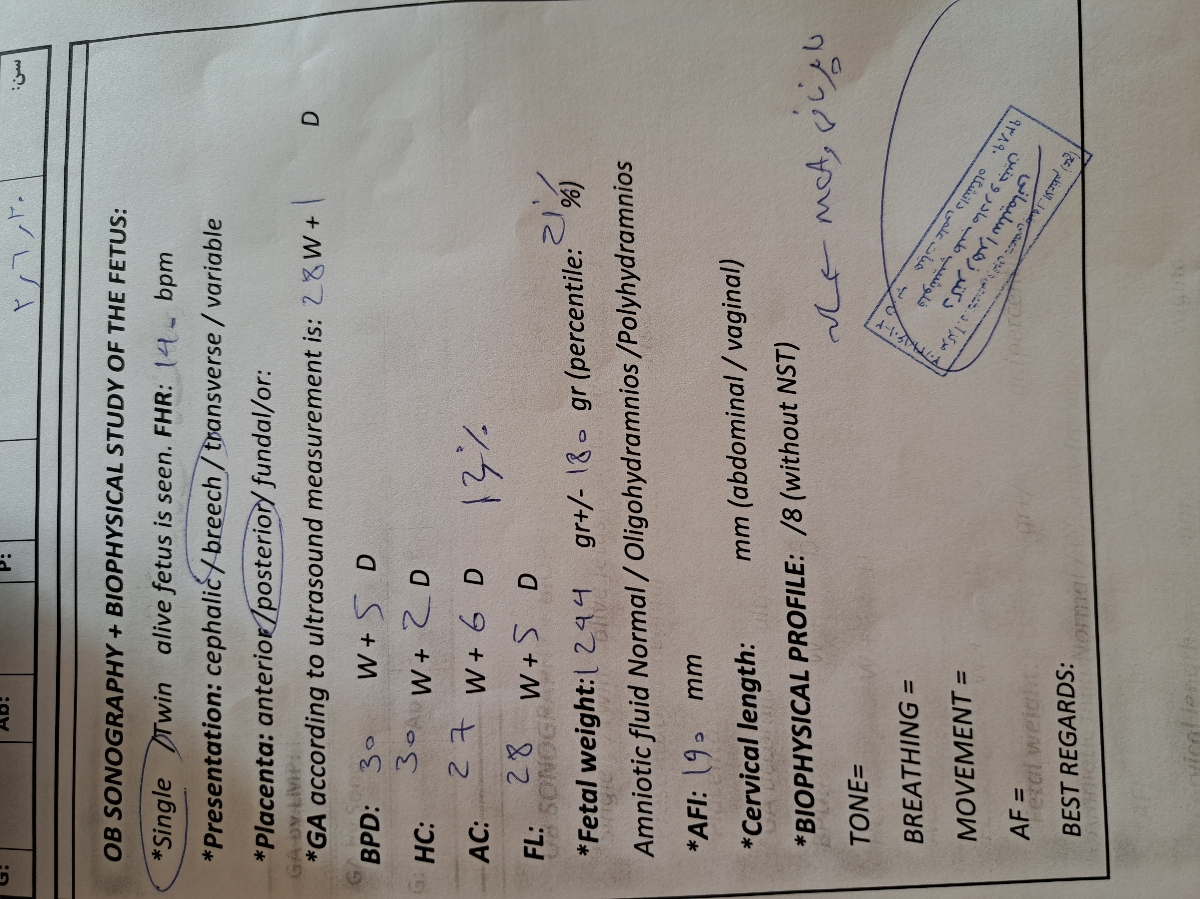 سن:
G: Ab: P:
OB SONOGRAPHY + BIOPHYSICAL STUDY OF THE FETUS:
*Single / Twin alive fetus is seen. FHR: bpm
*Presentation: cephalic / breech / transverse / variable
*Placenta: anterior /posterior/ fundal/or:
*GA according to ultrasound measurement is: 28 W + 1 D
BPD: 30 W + 5 D
HC: 30 W + 2 D
AC: 27 W + 6 D 13%
FL: 28 W + 5 D
*Fetal weight: 1244 gr+/- 180 gr (percentile: 21% %)
Amniotic fluid Normal / Oligohydramnios /Polyhydramnios
*AFI: 190 mm
*Cervical length: mm (abdominal / vaginal)
*BIOPHYSICAL PROFILE: /8 (without NST)
TONE=
BREATHING =
MOVEMENT =
AF =
BEST REGARDS:
MCA,
دکتر زهرا سلیمانی